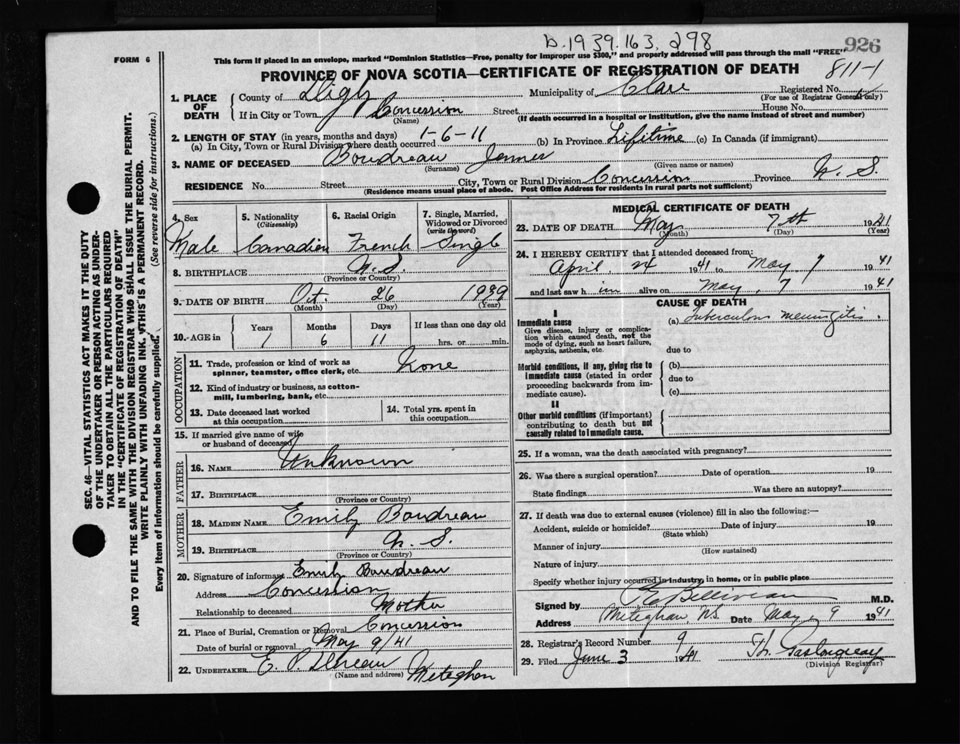 b. 1939. 163. 298
926
811-1
FORM 6
This form if placed in an envelope, marked "Dominion Statistics—Free, penalty for improper use $300," and properly addressed will pass through the mail "FREE"
PROVINCE OF NOVA SCOTIA—CERTIFICATE OF REGISTRATION OF DEATH
1. PLACE OF DEATH
County of Digby Municipality of Clare Registered No.
(For use of Registrar General only)
If in City or Town Concession Street House No.
(Name) (If death occurred in a hospital or institution, give the name instead of street and number)
2. LENGTH OF STAY (in years, months and days)
(a) In City, Town or Rural Division where death occurred 1-6-11 (b) In Province Lifetime (c) In Canada (if immigrant)
3. NAME OF DECEASED Boudreau
(Surname) (Given name or names)
RESIDENCE No. Street City, Town or Rural Division Concession Province N. S.
(Residence means usual place of abode. Post Office Address for residents in rural parts not sufficient)
4. Sex 5. Nationality (Citizenship) 6. Racial Origin 7. Single, Married, Widowed or Divorced (write the word)
Male Canadian French Single
8. BIRTHPLACE N. S.
(Province or Country)
9. DATE OF BIRTH Oct. 26 1939
(Month) (Day) (Year)
10. AGE in Years Months Days If less than one day old
1 6 11 hrs. or min.
OCCUPATION
11. Trade, profession or kind of work as spinner, teamster, office clerk, etc. None
12. Kind of industry or business, as cotton-mill, lumbering, bank, etc.
13. Date deceased last worked at this occupation
14. Total yrs. spent in this occupation
15. If married give name of wife or husband of deceased
FATHER
16. NAME Unknown
17. BIRTHPLACE
(Province or Country)
MOTHER
18. MAIDEN NAME Emily Boudreau
19. BIRTHPLACE N. S.
(Province or Country)
20. Signature of informant Emily Boudreau
Address Concession
Relationship to deceased Mother
21. Place of Burial, Cremation or Removal Concession
Date of burial or removal May 9/41
22. UNDERTAKER E. P. Meteghan
(Name and address)
MEDICAL CERTIFICATE OF DEATH
23. DATE OF DEATH May 7th 1941
(Month) (Day) (Year)
24. I HEREBY CERTIFY that I attended deceased from:
April 24 1941 to May 7 1941
and last saw him alive on May, 7 1941
CAUSE OF DEATH
I
Immediate cause
Give disease, injury or complication which caused death, not the mode of dying, such as heart failure, asphyxia, asthenia, etc.
(a) Tuberculous meningitis.
due to
Morbid conditions, if any, giving rise to immediate cause (stated in order proceeding backwards from immediate cause).
(b)
due to
(c)
II
Other morbid conditions (if important) contributing to death but not causally related to immediate cause.
25. If a woman, was the death associated with pregnancy?
26. Was there a surgical operation? Date of operation 19
State findings Was there an autopsy?
27. If death was due to external causes (violence) fill in also the following:—
Accident, suicide or homicide? Date of injury 19
(State which)
Manner of injury
(How sustained)
Nature of injury
Specify whether injury occurred in industry, in home, or in public place
Signed by Belliveau M.D.
Address Meteghan N.S. Date May 9 1941
28. Registrar's Record Number 9
29. Filed June 3 1941
(Division Registrar)
SEC. 46—VITAL STATISTICS ACT MAKES IT THE DUTY
OF THE UNDERTAKER OR PERSON ACTING AS UNDER-
TAKER TO OBTAIN ALL THE PARTICULARS REQUIRED
IN THE "CERTIFICATE OF REGISTRATION OF DEATH"
AND TO FILE THE SAME WITH THE DIVISION REGISTRAR WHO SHALL ISSUE THE BURIAL PERMIT.
WRITE PLAINLY WITH UNFADING INK, THIS IS A PERMANENT RECORD.
Every item of information should be carefully supplied. (See reverse side for instructions.)